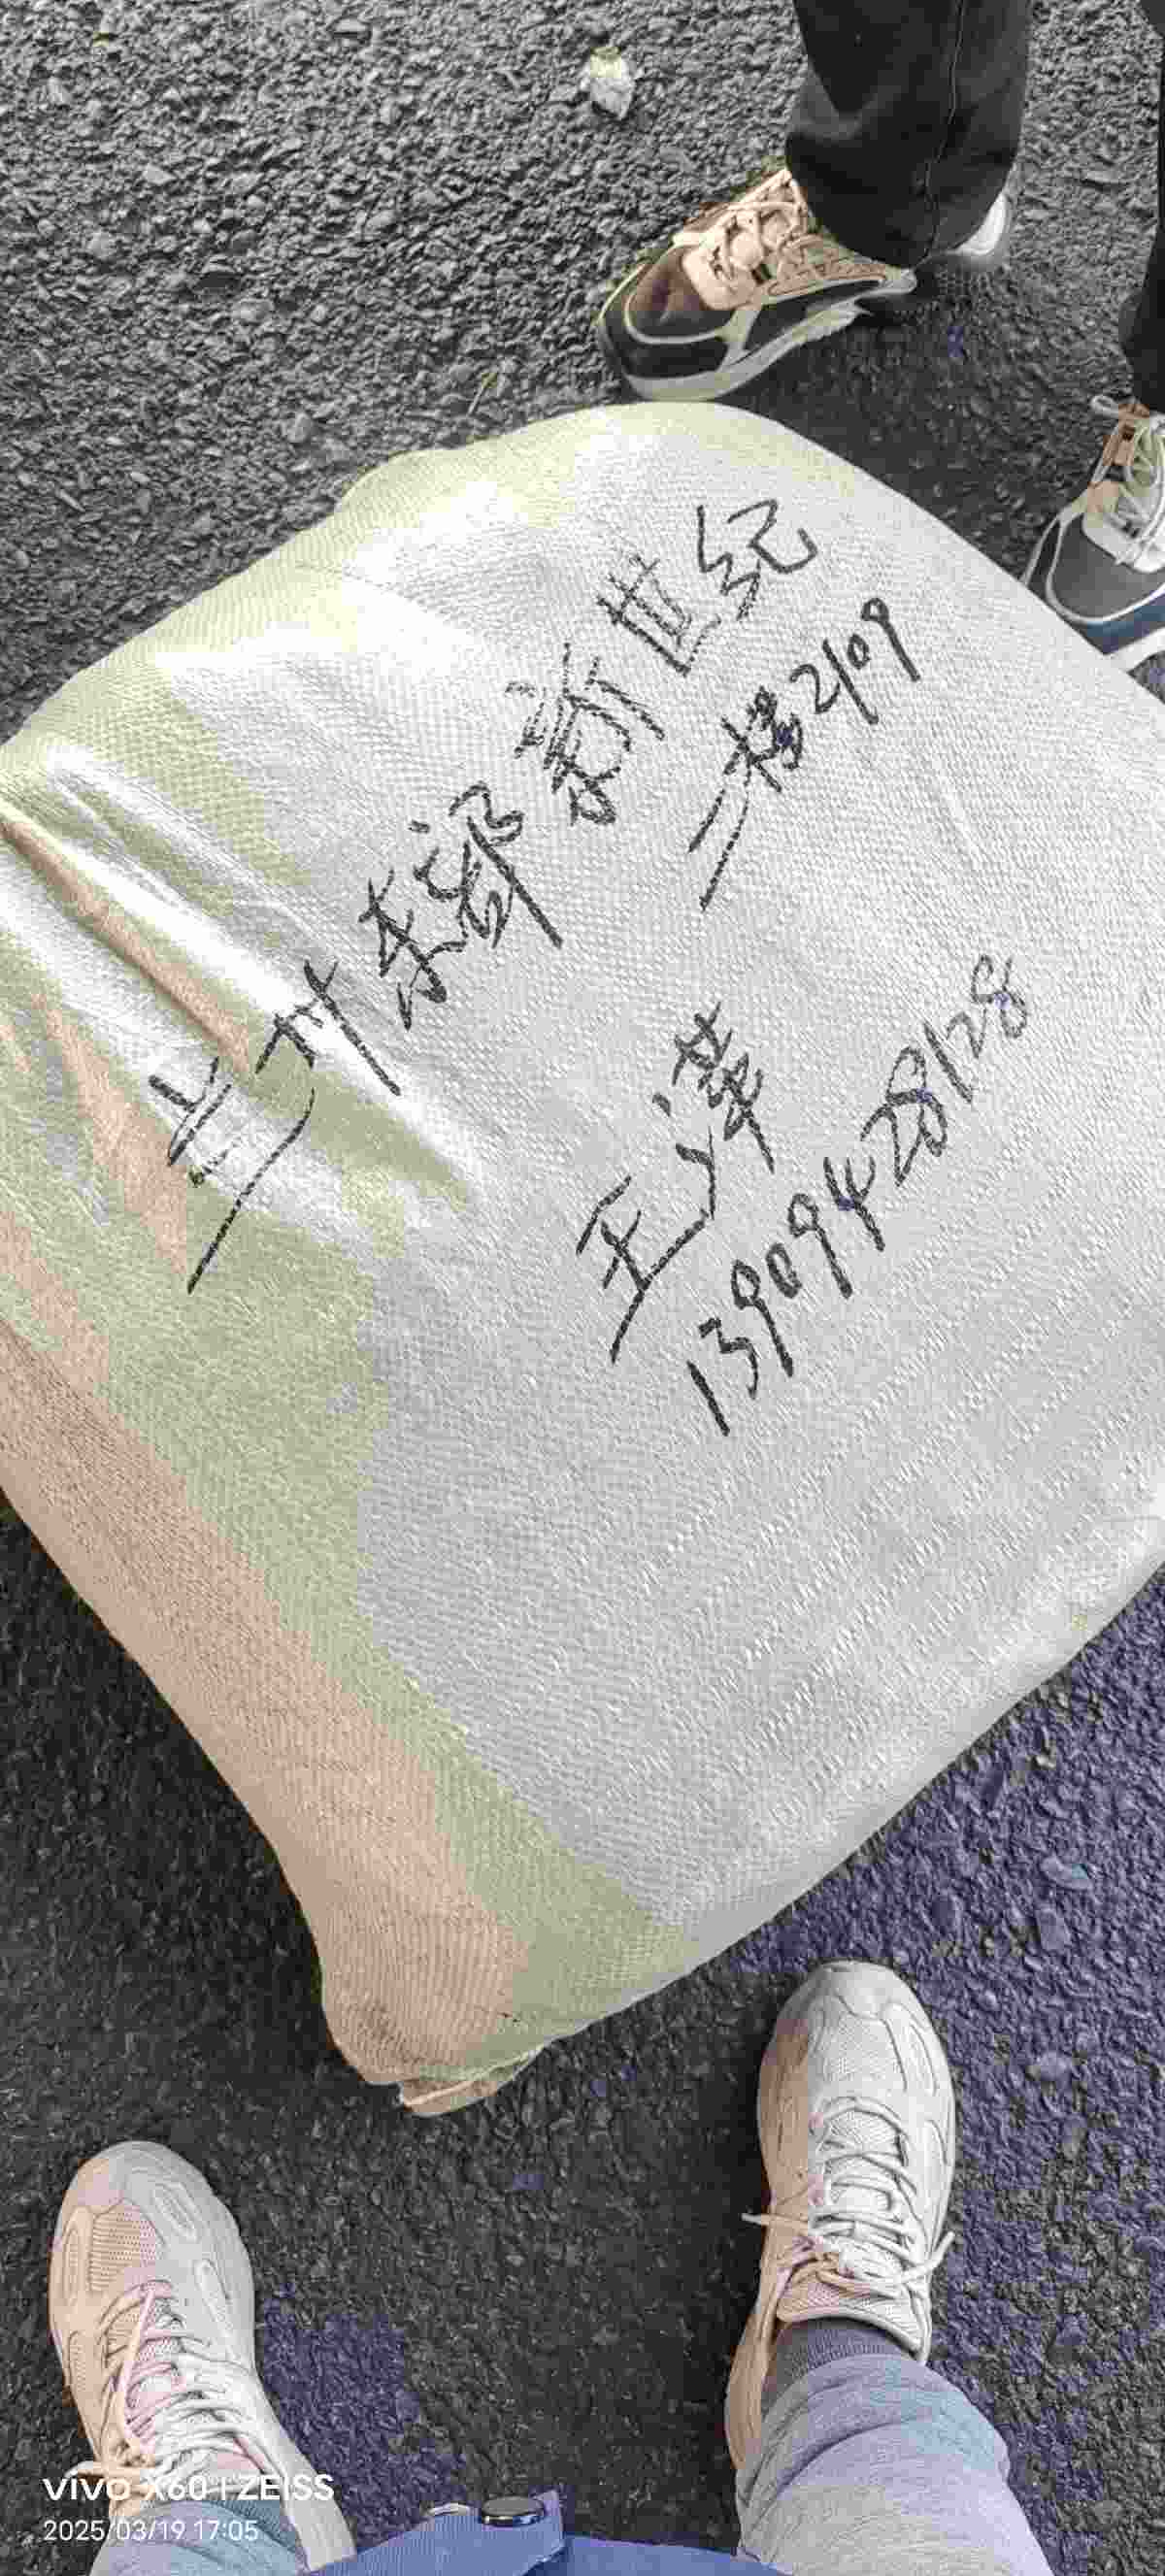 兰州东部新世纪
二楼2109
王义萍
13909428128
vivo X60 | ZEISS
2025/03/19 17:05